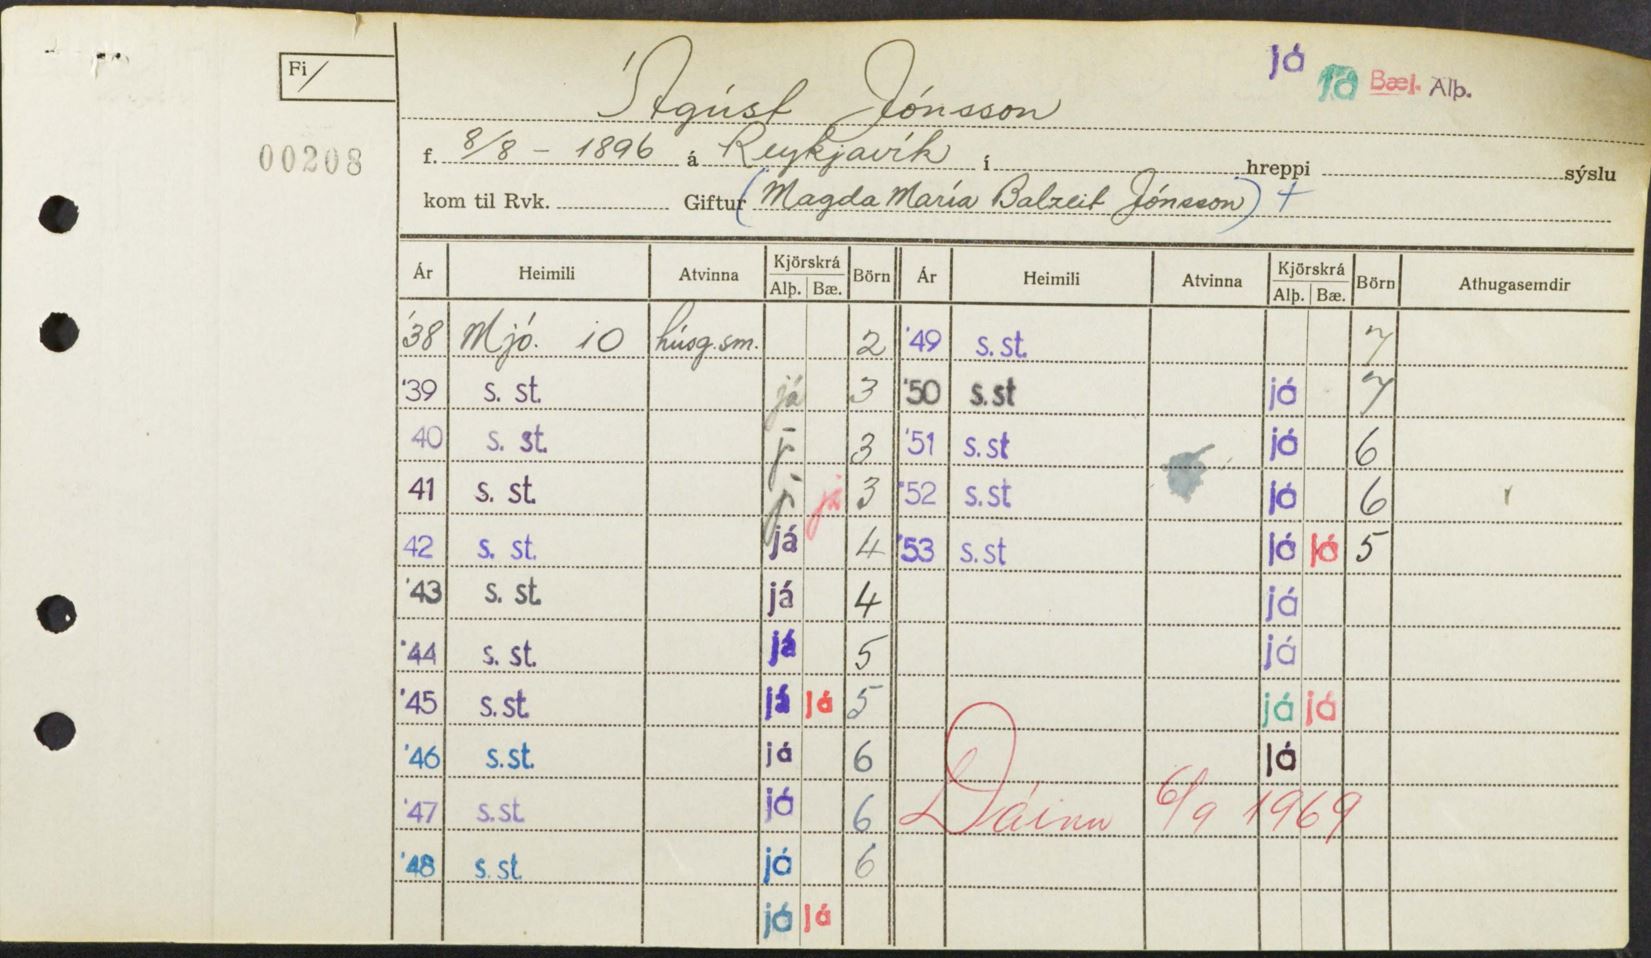 Fi/
já já Bæj. Alþ.
Ágúst Jónsson
00208
f. 8/8 - 1896 á Reykjavík í hreppi sýslu
kom til Rvk. Giftur (Magda María Balzeit Jónsson) +
Ár Heimili Atvinna Kjörskrá Alþ. Bæ. Börn Ár Heimili Atvinna Kjörskrá Alþ. Bæ. Börn Athugasemdir
'38 Mjó. 10 húsg.sm. 2 '49 s.st. 7
'39 s. st. já 3 '50 s.st já 7
40 s. st. j- 3 '51 s.st já 6
41 s. st. j- já 3 '52 s.st já 6
42 s. st. já 4 '53 s.st já já 5
'43 s. st. já 4 já
'44 s. st. já 5 já
'45 s.st. já já 5 já já
'46 s.st. já 6 já
'47 s.st já 6 Dáinn 6/9 1969
'48 s.st. já 6
já já